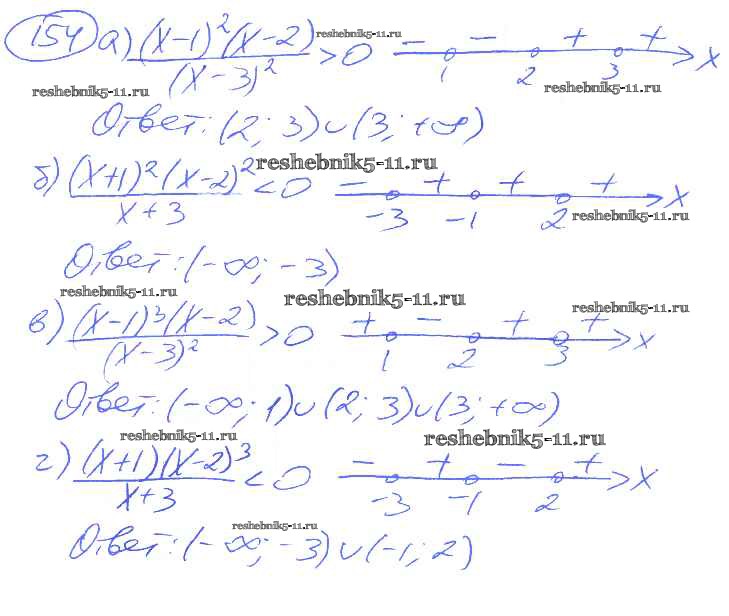 154 а) (x-1)²(x-2)/(x-3)² > 0 - - + + x
1 2 3
reshebnik5-11.ru
reshebnik5-11.ru reshebnik5-11.ru
Ответ: (2; 3)∪(3; +∞)
б) (x+1)²(x-2)²/x+3 < 0 - + + + x
-3 -1 2
reshebnik5-11.ru
reshebnik5-11.ru
Ответ: (-∞; -3)
reshebnik5-11.ru reshebnik5-11.ru reshebnik5-11.ru
в) (x-1)³(x-2)/(x-3)² > 0 + - + + x
1 2 3
Ответ: (-∞; 1)∪(2; 3)∪(3; +∞)
reshebnik5-11.ru reshebnik5-11.ru
г) (x+1)(x-2)³/x+3 < 0 - + - + x
-3 -1 2
reshebnik5-11.ru
Ответ: (-∞; -3)∪(-1; 2)